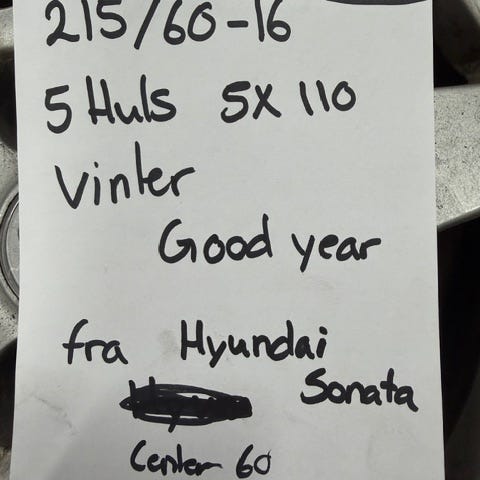 215/60-16
5 Huls 5X110
Vinter
Good year
fra Hyundai
Sonata
Center 60